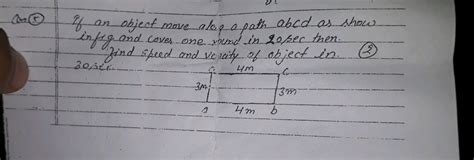 Que (5) If an object move along a path abcd as show
in fig and cover one round in 20/sec then.
find speed and velocity of object in. (2)
30/sec.
4m
c
3m
3m
a
4m
b